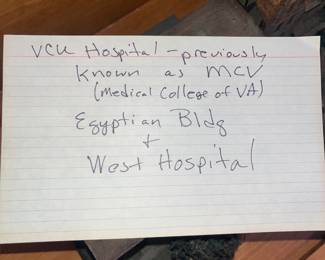 VCU Hospital - previously
known as MCV
(Medical College of VA)
Egyptian Bldg
+
West Hospital